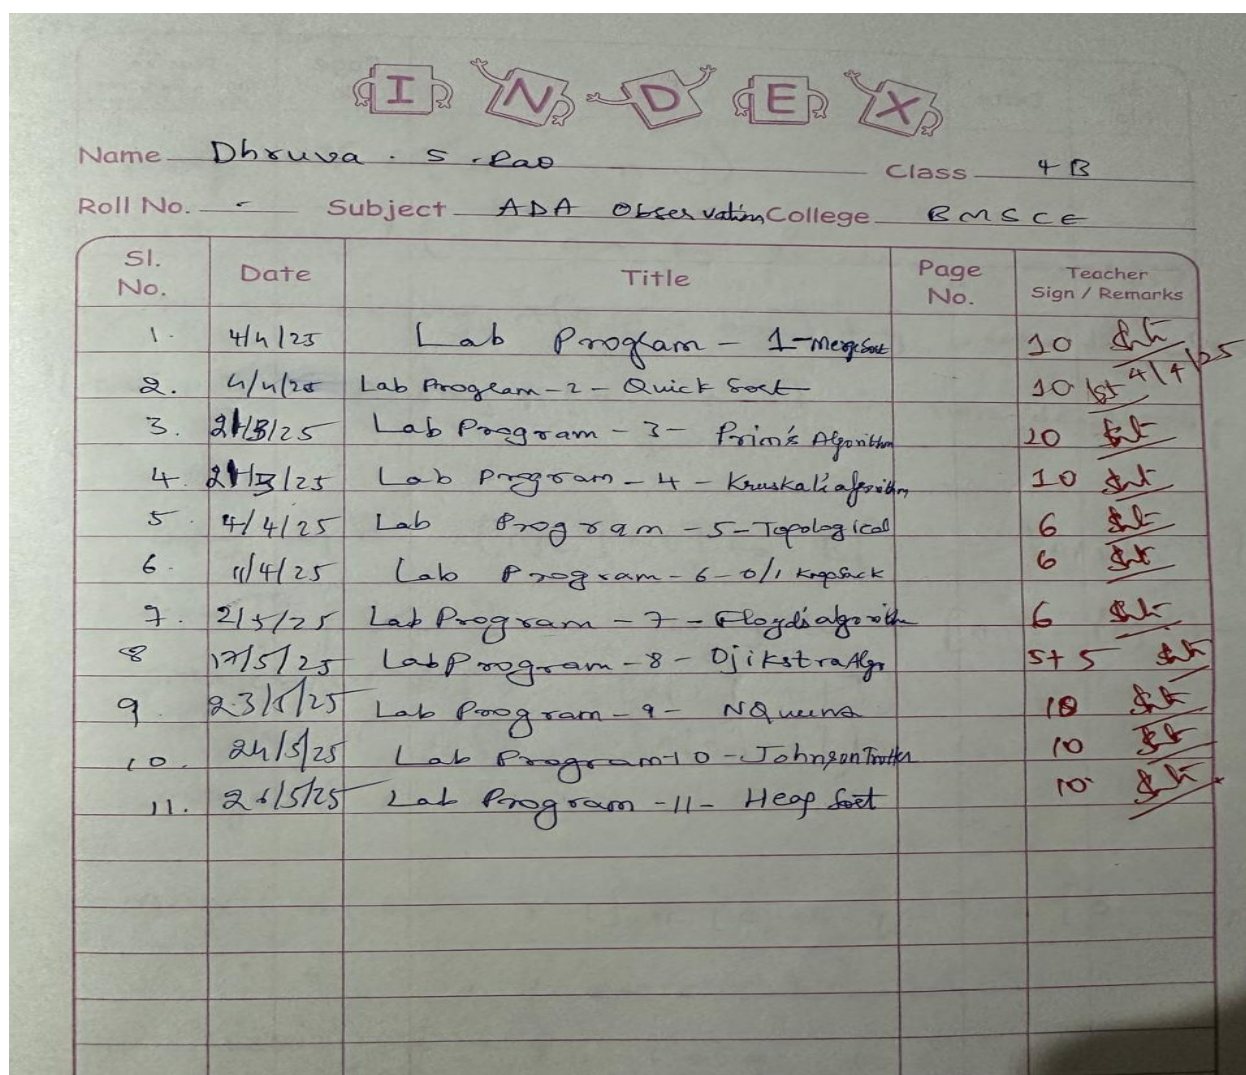 INDEX
Name Dhruva . S . Rao Class 4 B
Roll No. - Subject ADA Observation College BMSCE
Sl. No. Date Title Page No. Teacher Sign / Remarks
1. 4/4/25 Lab Program - 1-MergeSort 10
2. 4/4/25 Lab Program-2-Quick Sort 10 4/4/25
3. /25 Lab Program - 3- Prim's Algorithm 10
4. /25 Lab Program - 4 - Kruskal's algorithm 10
5. 4/4/25 Lab Program -5-Topological 6
6. 11/4/25 Lab Program-6-0/1 KnapSack 6
7. 2/5/25 Lab Program - 7 - Floyd's algorithm 6
8 17/5/25 Lab Program-8- DjikstraAlgo 5+5
9. 23/5/25 Lab Program-9- NQueens 10
10. 24/5/25 Lab Program-10-JohnsonTrotter 10
11. /5/25 Lab Program -11- Heap Sort 10